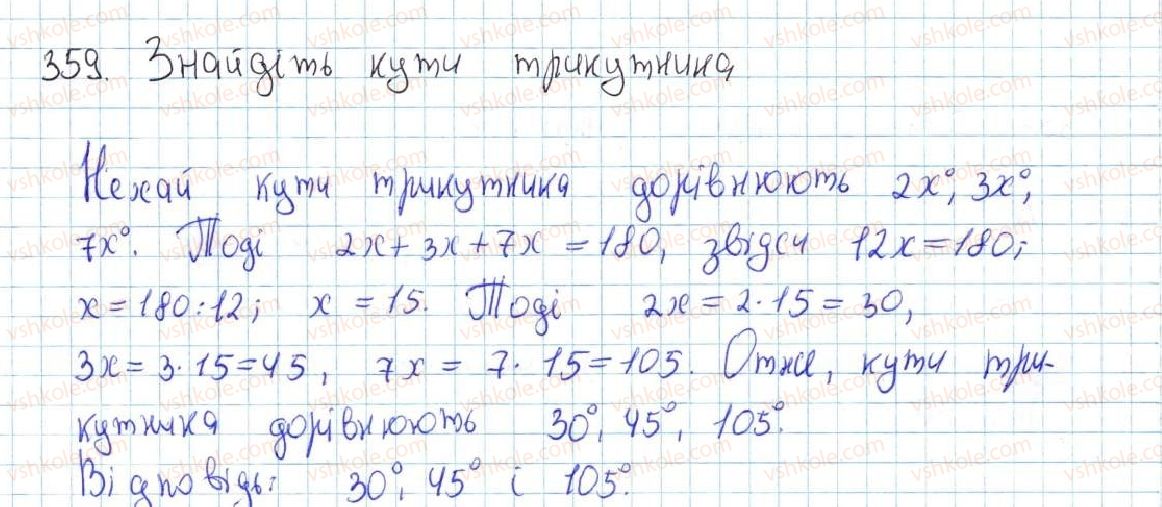 359. Знайдіть кути трикутника
Нехай кути трикутника дорівнюють 2x°, 3x°,
7x°. Тоді 2x + 3x + 7x = 180, звідси 12x = 180;
x = 180 : 12; x = 15. Тоді 2x = 2 · 15 = 30,
3x = 3 · 15 = 45, 7x = 7 · 15 = 105. Отже, кути три-
кутника дорівнюють 30°, 45°, 105°.
Відповідь: 30°, 45° і 105°.
vshkole.com